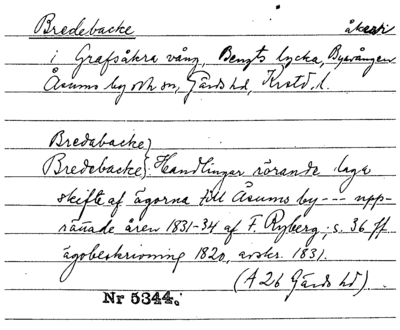 Bredebacke åker
i Grafsåkra vång, Bengts lycka, Byavången
Åsums by och sn, Gärds hd, Kristd. l.
Bredabacke}
Bredebacke} Handlingar rörande laga
skifte af ägorna till Åsums by --- upp-
rättade åren 1831-34 af F. Ryberg; s. 36 ff.
ägobeskrivning 1820, avskr. 1831.
(A 26 Gärds hd)
Nr 5344.